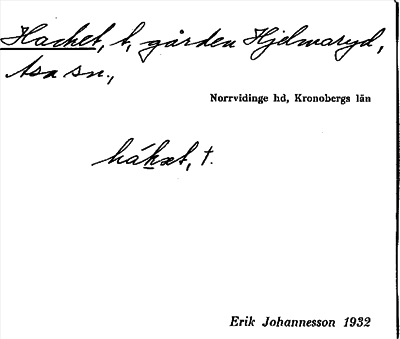 Hachet, t, gården Hjelmaryd,
Asa sn.,
Norrvidinge hd, Kronobergs län
háhæt, t.
Erik Johannesson 1932